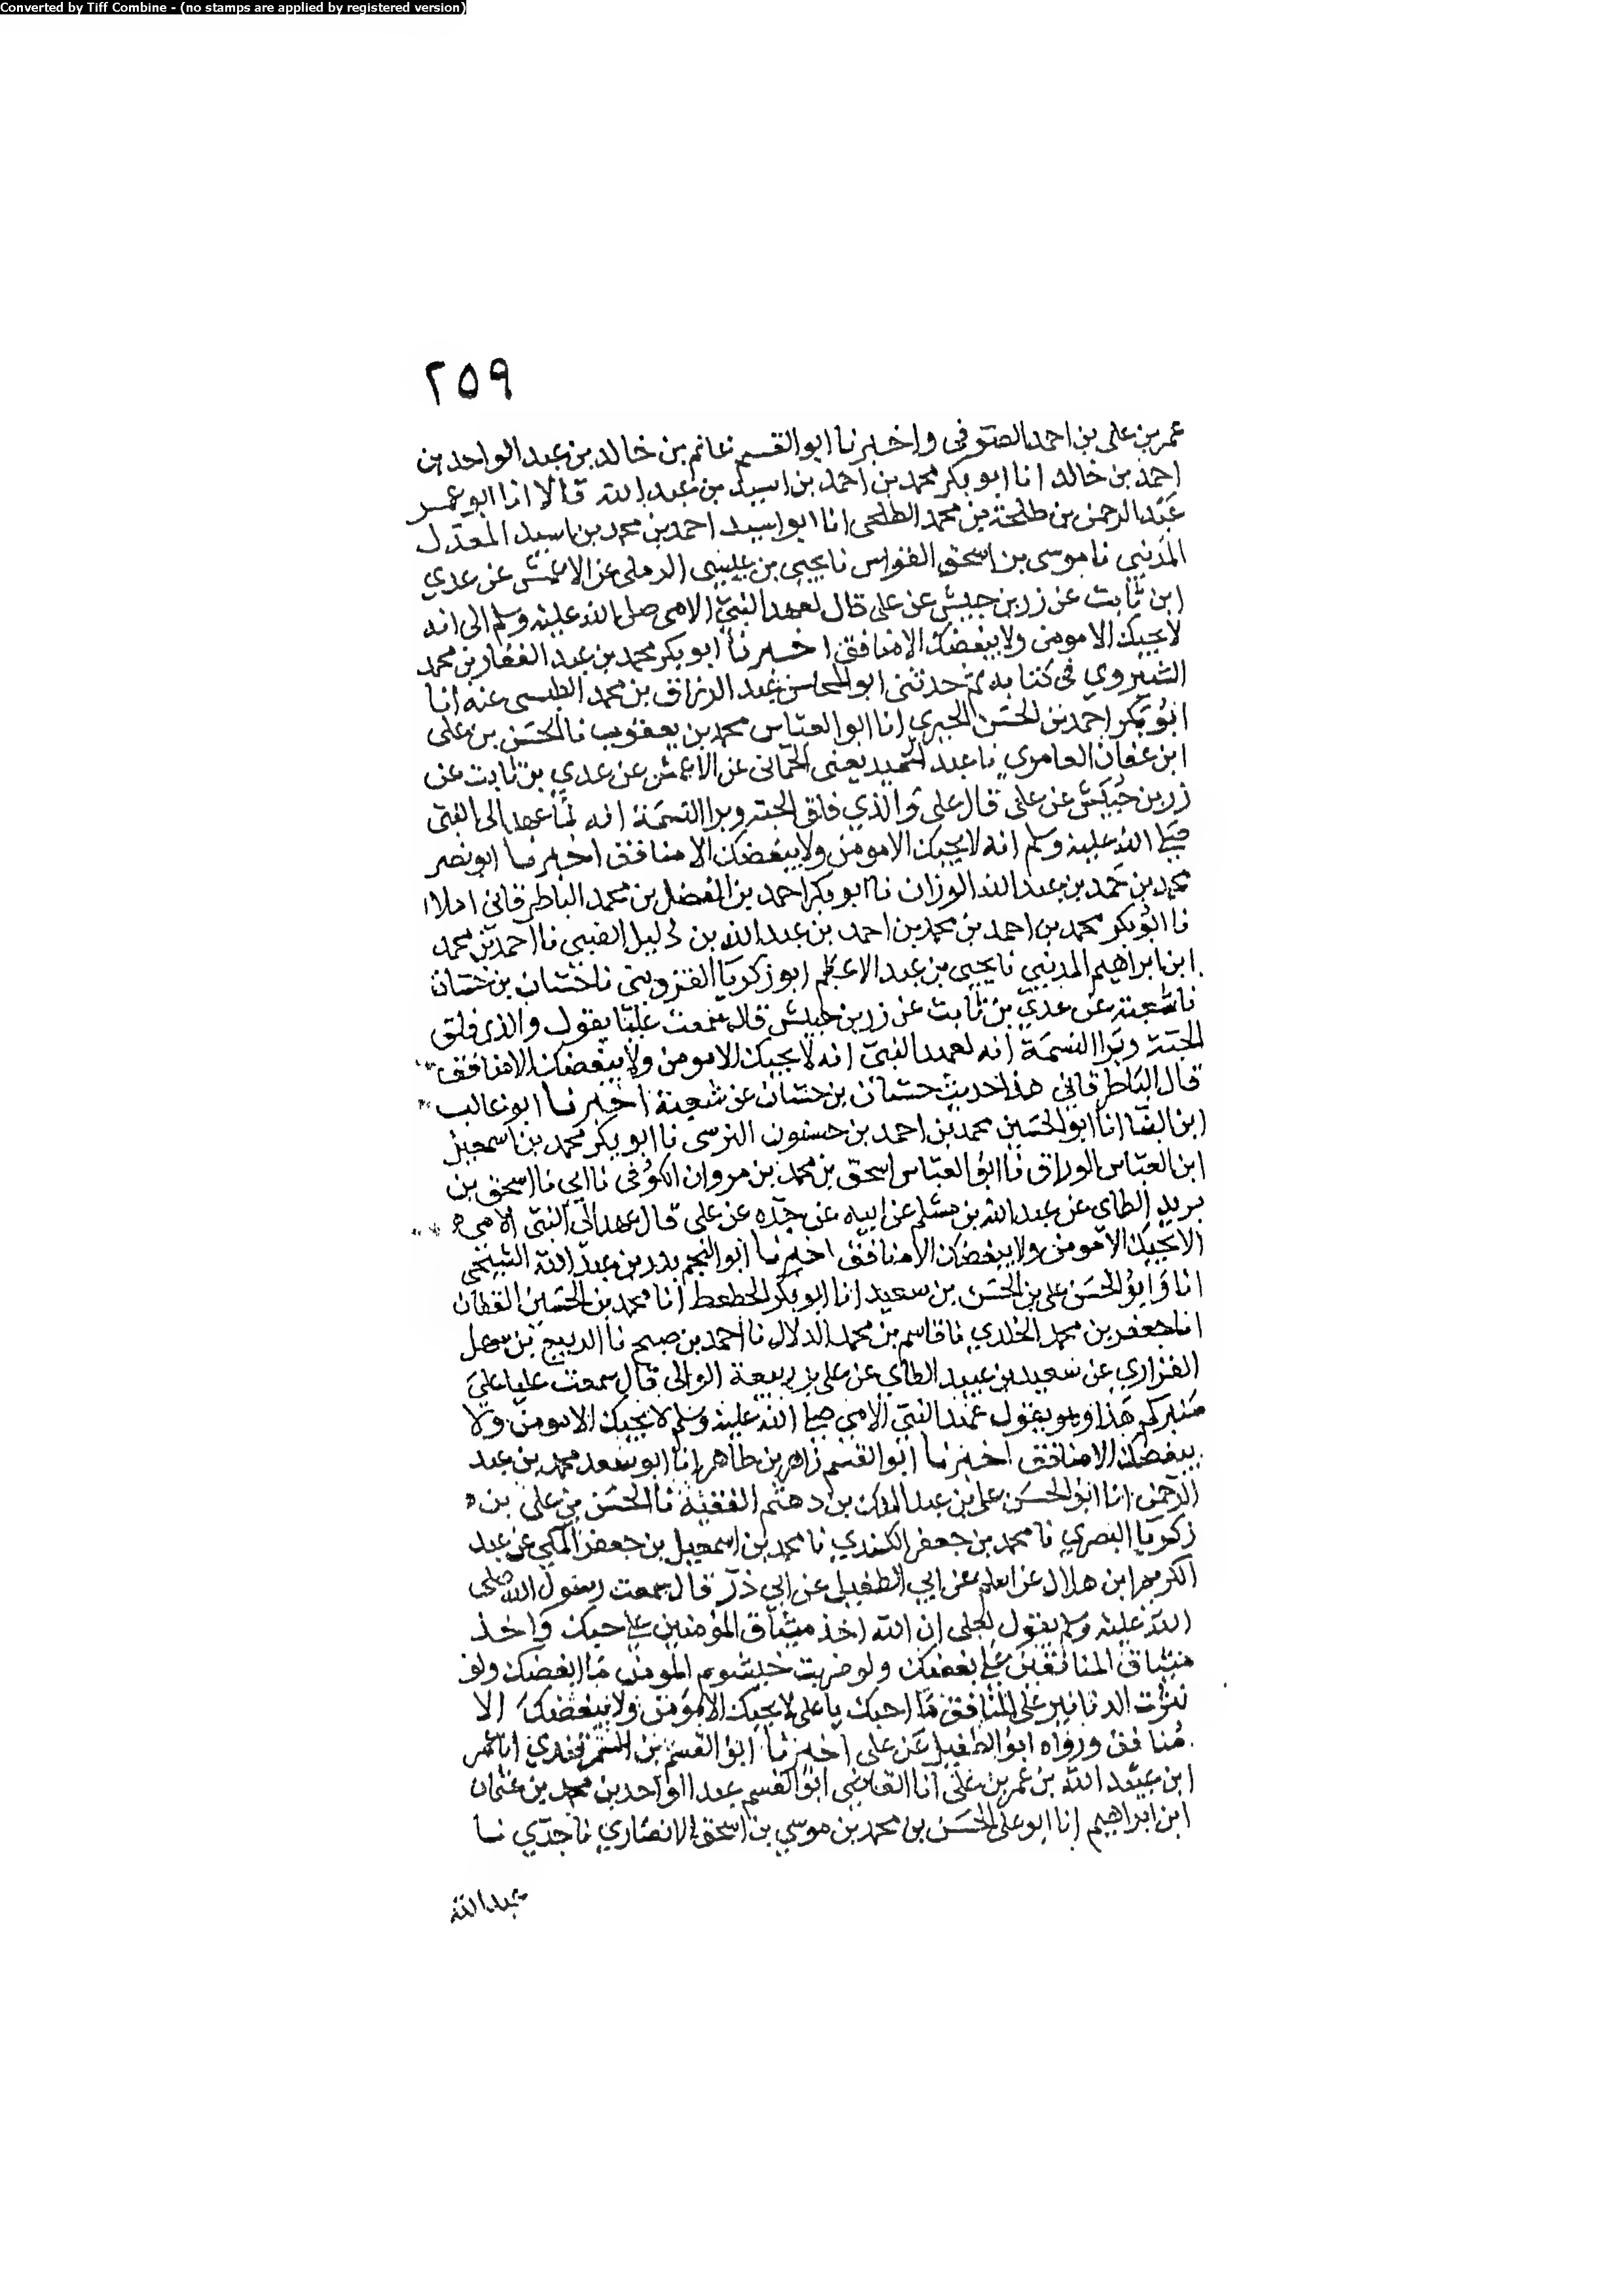 Converted by Tiff Combine - (no stamps are applied by registered version)
٢٥٩
عمر بن على بن احمد الصوفى واخبرنا ابو القسم غانم بن خالد بن عبد الواحد بن
احمد بن خالد انا ابو بكر محمد بن احمد بن اسيد بن عبد الله قالا انا ابو عمر
عبد الرحمن بن طلحة بن محمد الطلحى انا ابو اسيد احمد بن محمد بن اسيد المعدل
المدنى نا موسى بن اسحق القواس نا يحيى بن عيسى الرملى عن الاعمش عن عدي
ابن ثابت عن زر بن حبيش عن على قال لعهد النبي الامى صلى الله عليه وسلم الى انه
لا يحبك الا مومن ولا يبغضك الا منافق اخبرنا ابو بكر محمد بن عبد الغفار بن محمد
الشيروي فى كتابه ثم حدثنى ابو المحاسن عبد الرزاق بن محمد الطبسى عنه انا
ابو بكر احمد بن الحسن الحيري انا ابو العباس محمد بن يعقوب نا الحسن بن على
ابن عفان العامري نا عبد الحميد يعنى الحمانى عن الاعمش عن عدي بن ثابت عن
زر بن حبيش عن على قال على والذي فلق الحبة وبرا النسمة انه لما عهد الى النبى
صلى الله عليه وسلم انه لا يحبك الا مومن ولا يبغضك الا منافق اخبرنا ابو نصر
محمد بن حمد بن عبد الله الوزان نا ابو بكر احمد بن الفضل بن محمد الباطرقانى املاا
نا ابو بكر محمد بن احمد بن محمد بن احمد بن عبد الله بن دليل الضبي نا احمد بن محمد
ابن ابراهيم المدينى نا يحيى بن عبد الاعظم ابو زكريا القزوينى نا حسان بن حسان
نا شعبة عن عدي بن ثابت عن زر بن حبيش قال سمعت عليا يقول والذى فلق
الحبة وبرا النسمة انه لعهد النبي انه لا يحبك الا مومن ولا يبغضك الا منافق
قال الباطرقانى هذا حديث حسان بن حسان عن شعبة اخبرنا ابو غالب
ابن البنا انا ابو الحسين محمد بن احمد بن حسنون النرسى نا ابو بكر محمد بن اسمعيل
ابن العباس الوراق نا ابو العباس اسحق بن محمد بن مروان الكوفى نا ابي نا اسحق بن
يزيد الطاى عن عبد الله بن مسلم عن ابيه عن جده عن على قال عهد الى النبى الامى
الا يحبك الا مومن ولا يبغضك الا منافق اخبرنا ابو النجم بدر بن عبد الله الشيخى
انا وابو الحسن على بن الحسن بن سعيد انا ابو بكر الخطيب انا محمد بن الحسين القطان
انا جعفر بن محمد الخلدي نا قاسم بن محمد الدلال نا احمد بن صبيح نا الربيع بن سهل
الفزاري عن سعيد بن عبيد الطاي عن على بن ربيعة الوالى قال سمعت عليا على
منبركم هذا وهو يقول عهد النبى الامي صلى الله عليه وسلم لا يحبك الا مومن ولا
يبغضك الا منافق اخبرنا ابو القسم زاهر بن طاهر انا ابو سعد محمد بن عبد
الرحمن انا ابو الحسن على بن عبد الملك بن دهثم الفقيه نا الحسن بن على بن
زكريا البصري نا محمد بن جعفر الكندي نا محمد بن اسمعيل بن جعفر المكى عن عبد
الكريم ابن هلال عن اسلم عن ابي الطفيل عن ابي ذر قال سمعت رسول الله صلى
الله عليه وسلم يقول لعلى ان الله اخذ ميثاق المؤمنين على حبك واخذ
ميثاق المنافقين على بغضك ولو ضربت خيشوم المومن ما ابغضك ولو
نثرت الدنانير على المنافق ما احبك يا على لا يحبك الا مومن ولا يبغضك الا
منافق ورواه ابو الطفيل عن على اخبرنا ابو القسم بن السمرقندي انا عمر
ابن عبيد الله بن عمر بن على انا القاضى ابو القسم عبد الواحد بن محمد بن عثمان
ابن ابراهيم انا ابو على الحسن بن محمد بن موسى بن اسحق الانصاري نا جدي نا
عبد الله